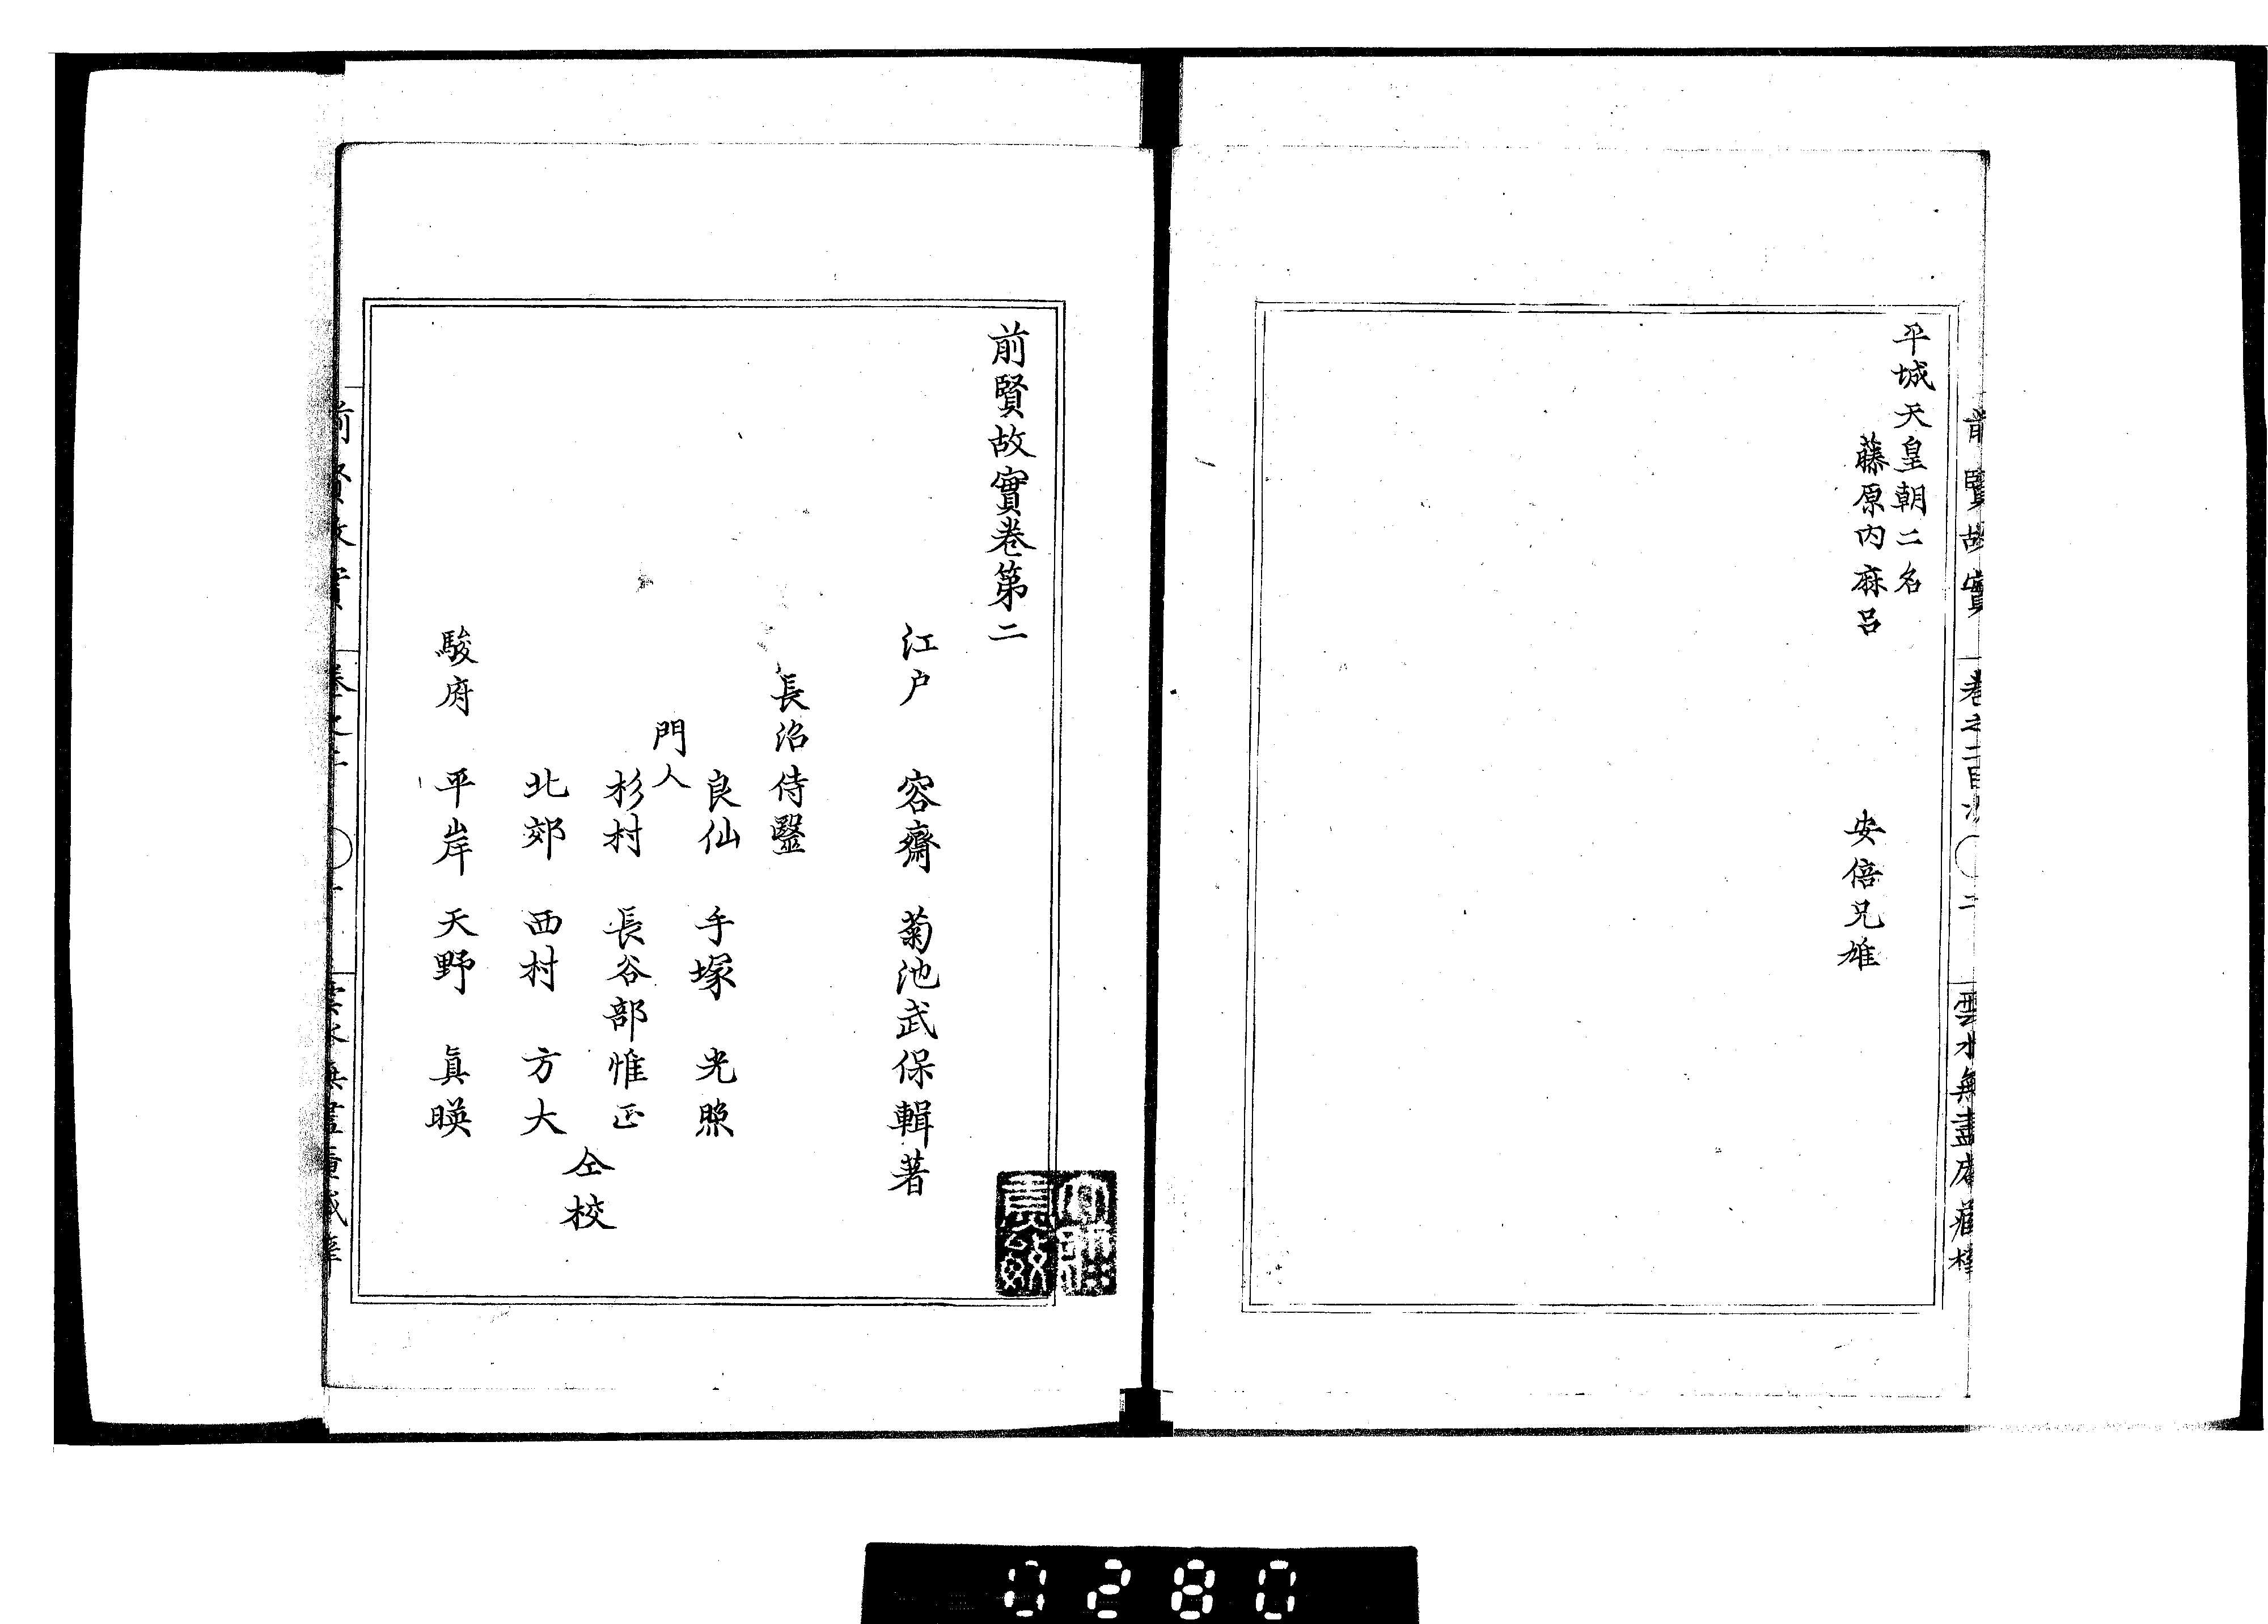 平城天皇朝二名
藤原内麻呂 安倍兄雄
前賢故實 卷之二目次 二 雲水無盡庵藏梓
前賢故實卷第二
江戸 容齋 菊池武保輯著
長治侍毉
良仙 手塚 光照
門人
杉村 長谷部惟正
北郊 西村 方大
仝校
駿府 平岸 天野 眞暎
前賢故實 卷之二
0280